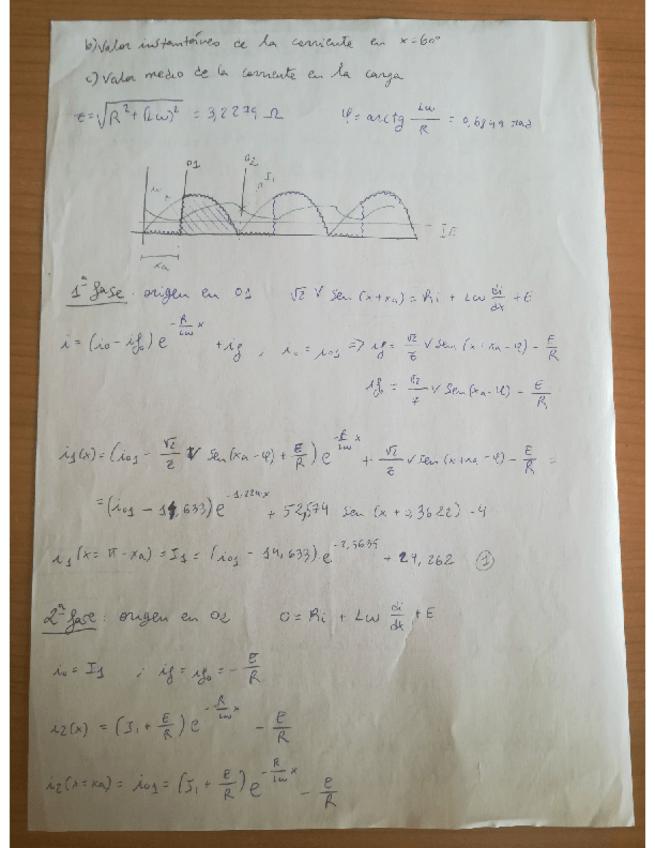 b) Valor instantáneo de la corriente en x=60º
c) Valor medio de la corriente en la carga
Z=√(R²+(Lω)²) = 3,2279 Ω φ=arctg Lω/R = 0,6849 rad
01 02 I₁
IE
xa
1ª fase: origen en 01 √2 V sen(x+xa)=Ri + Lω di/dx + E
i=(i₀-if₀)e^(-R/Lω x) + if ; i₀=i₀₁ => if = √2/Z V sen(x+xa-φ) - E/R
if₀ = √2/Z V sen(xa-φ) - E/R
i₁(x)=(i₀₁ - √2/Z V sen(xa-φ)+E/R)e^(-R/Lω x) + √2/Z V sen(x+xa-φ) - E/R =
=(i₀₁ - 14,633)e^(-1,224x) + 52,574 sen(x+0,3622) -4
i₁(x=π-xa)=I₁=(i₀₁-14,633)·e^(-2,5635) + 24,262 ①
2ª fase: origen en 02 0=Ri + Lω di/dx + E
i₀=I₁ ; if=if₀=-E/R
i₂(x) = (I₁+E/R)e^(-R/Lω x) - E/R
i₂(x=xa)=i₀₁=(I₁+E/R)e^(-R/Lω x) - E/R